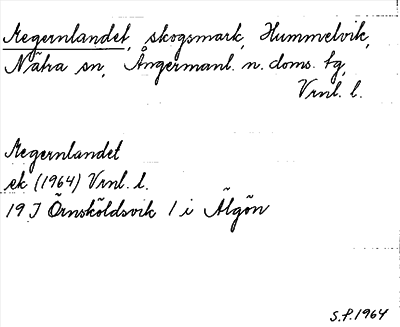 Aegernlandet, skogsmark, Hummelvik,
Nätra sn, Ångermanl. n. doms. tg,
Vrnl. l.
Aegernlandet
ek (1964) Vrnl. l.
19 J Örnsköldsvik 1 i Älgön
S.P. 1964